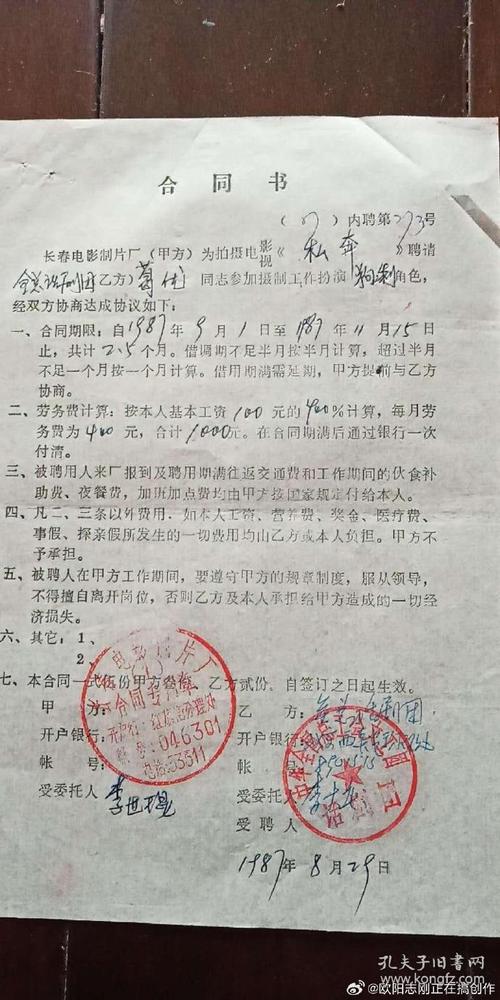 合同书
(87)内聘第273号
长春电影制片厂(甲方)为拍摄电影视《私奔》聘请
全总话剧团乙方)葛优同志参加摄制工作扮演角色,
经双方协商达成协议如下:
一、合同期限:自1987年9月1日至1987年11月15日
止,共计2.5个月。借调期不足半月按半月计算,超过半月
不足一个月按一个月计算。借用期满需延期,甲方提前与乙方
协商。
二、劳务费计算:按本人基本工资100元的400%计算,每月劳
务费为400元,合计1000元。在合同期满后通过银行一次
付清。
三、被聘用人来厂报到及聘用期满往返交通费和工作期间的伙食补
助费、夜餐费,加班加点费均由甲方按国家规定付给本人。
四、凡二、三条以外费用,如本人工资、营养费、奖金、医疗费、
事假、探亲假所发生的一切费用均由乙方或本人负担。甲方不
予承担。
五、被聘人在甲方工作期间,要遵守甲方的规章制度,服从领导,
不得擅自离开岗位,否则乙方及本人承担给甲方造成的一切经
济损失。
六、其它:1、
2、
七、本合同一式伍份甲方叁份,乙方贰份,自签订之日起生效。
甲方:
开户银行:
帐号:
受委托人 李世
电影制片厂
合同专用章
开户行:
帐号:046301
电话:53311
乙方:全总话剧团
开户银行:
帐号:
受委托人
受聘人
话剧团
1987年8月29日
孔夫子旧书网
www.kongfz.com
@欧阳志刚正在搞创作